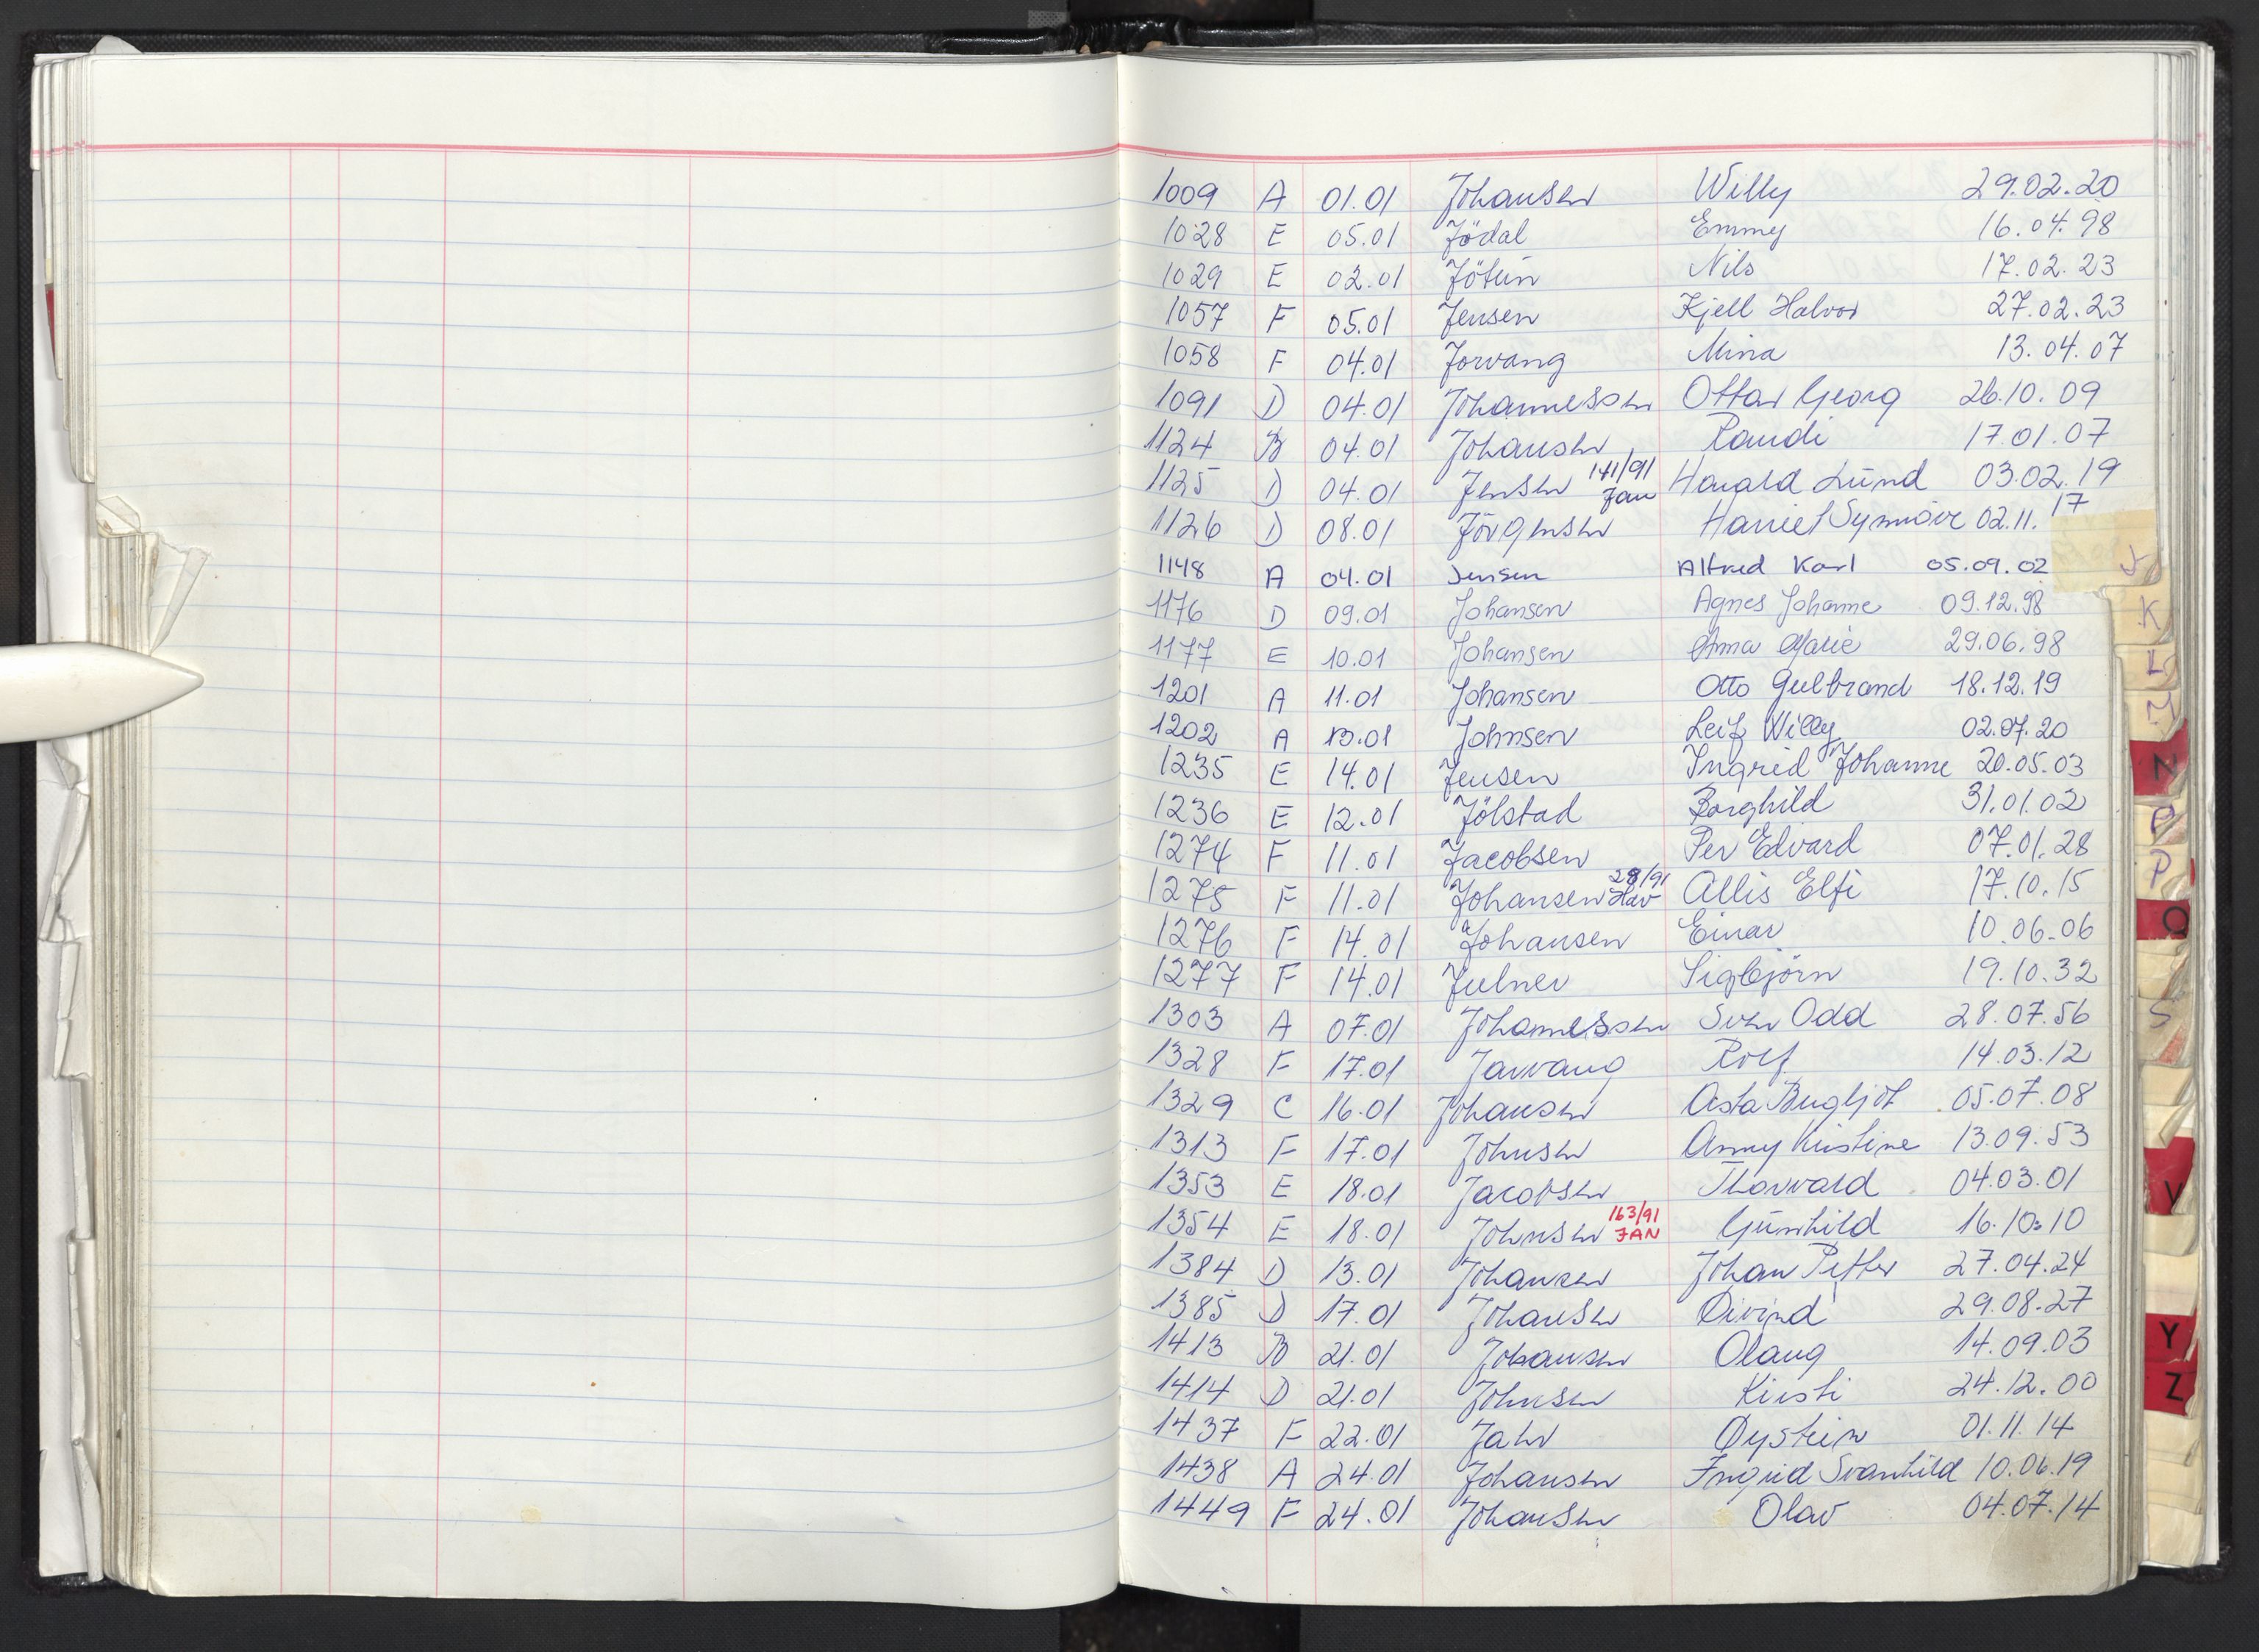 1009 A 01.01 Johansen Willy 29.02.20
1028 E 05.01 Jödal Emmy 16.04.98
1029 E 02.01 Jötun Nils 17.02.23
1057 F 05.01 Jensen Kjell Halvor 27.02.23
1058 F 04.01 Jorvang Mina 13.04.07
1091 D 04.01 Johannessen Ottar Georg 26.10.09
1124 B 04.01 Johansen Randi 17.01.07
1125 D 04.01 Jensen 141/91 Jan Harald Lund 03.02.19
1126 D 08.01 Jörgensen Harriet Synnöve 02.11.17
1148 A 04.01 Jensen Alfred Karl 05.09.02
J
1176 D 09.01 Johansen Agnes Johanne 09.12.98
K
1177 E 10.01 Johansen Anna Marie 29.06.98
L
1201 A 11.01 Johansen Otto Gulbrand 18.12.19
1202 A 13.01 Johnsen Leif Willy 02.07.20
1235 E 14.01 Jensen Ingrid Johanne 20.05.03
N
1236 E 12.01 Jölstad Borghild 31.01.02
1274 F 11.01 Jacobsen Per Edvard 07.01.28
P
1275 F 11.01 Johansen 28/91 Hav Allis Elfi 17.10.15
1276 F 14.01 Johansen Einar 10.06.06
Q
1277 F 14.01 Julner Sigbjörn 19.10.32
1303 A 07.01 Johannessen Sven Odd 28.07.56
S
1328 F 17.01 Jarvang Rolf 14.03.12
1329 C 16.01 Johansen Asta Bergljot 05.07.08
1313 F 17.01 Johnsen Anny Kristine 13.09.53
1353 E 18.01 Jacobsen Thorvald 04.03.01
V
1354 E 18.01 Johnsen 163/91 JAN Gunhild 16.10.10
1384 D 13.01 Johansen Johan Petter 27.04.24
1385 D 17.01 Johansen Øivind 29.08.27
1413 B 21.01 Johansen Olaug 14.09.03
Y
1414 D 21.01 Johnsen Kirsti 24.12.00
Z
1437 F 22.01 Jahr Øystein 01.11.14
1438 A 24.01 Johansen Ingrid Svanhild 10.06.19
1449 F 24.01 Johansen Olav 04.07.14